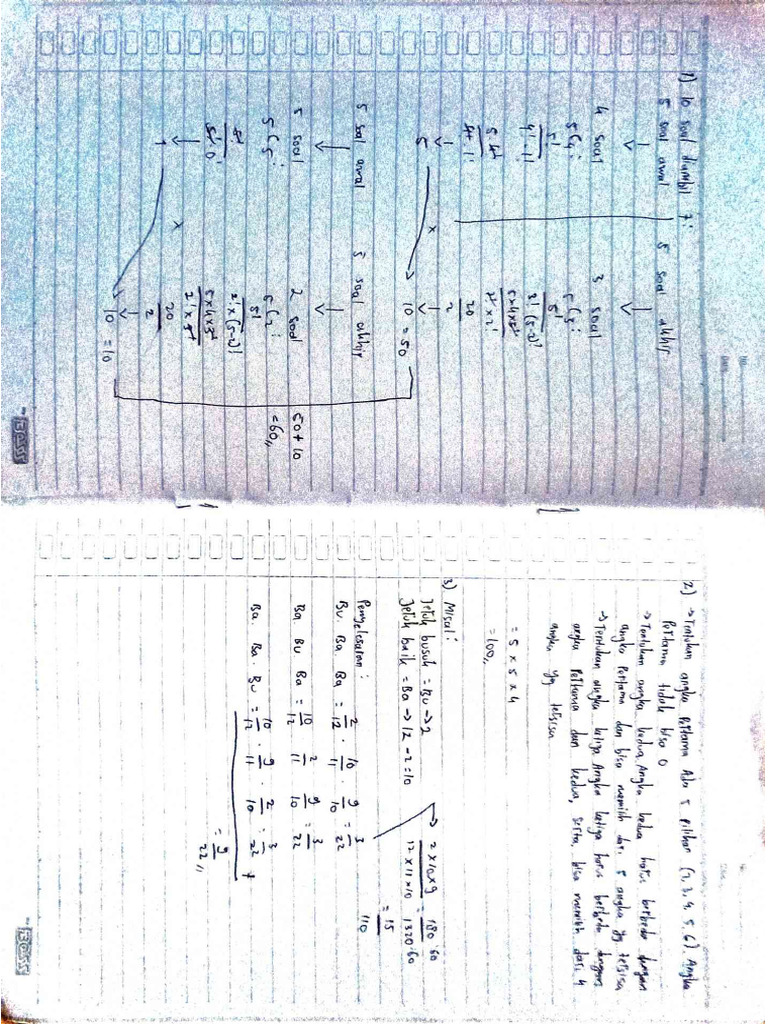 1) 10 soal diambil 7 :
5 soal awal 5 soal akhir
4 soal 3 soal
5C4 : 5C3 :
5! 5!
4! · 1! 3! (5-2)!
5 · 4! 5 x 4 x 3!
4! · 1! 3! x 2!
20
2
5 x 10 = 50
5 soal awal 5 soal akhir
5 soal 2 soal
5C5 : 5C2 :
5! 5!
5! · 0! 2! x (5-2)!
5 x 4 x 3!
2! x 3!
20
2
1 x 10 = 10
50 + 10
= 60,,
Bess
2) → Tentukan angka Pertama Ada 5 pilihan (2, 3, 4, 5, 6) Angka
Pertama tidak bisa 0
→ Tentukan angka kedua, Angka kedua harus berbeda dengan
angka Pertama dan bisa memilih dari 5 angka yg tersisa
→ Tentukan angka ketiga Angka ketiga harus berbeda dengan
angka Pertama dan kedua, serta bisa memilih dari 4
angka yg tersisa
= 5 x 5 x 4
= 100,,
3) Misal :
Jeruk busuk = Bu → 2
Jeruk baik = Ba → 12 - 2 = 10
2 x 10 x 9 = 180 : 60
12 x 11 x 10 1320 : 60
= 15
110
Penyelesaian :
Bu Ba Ba = 2/12 · 10/11 · 9/10 = 3/22
Ba Bu Ba = 10/12 2/11 9/10 = 3/22
Ba · Ba · Bu = 10/12 · 9/11 · 2/10 = 3/22 +
= 9/22 ,,
Bess